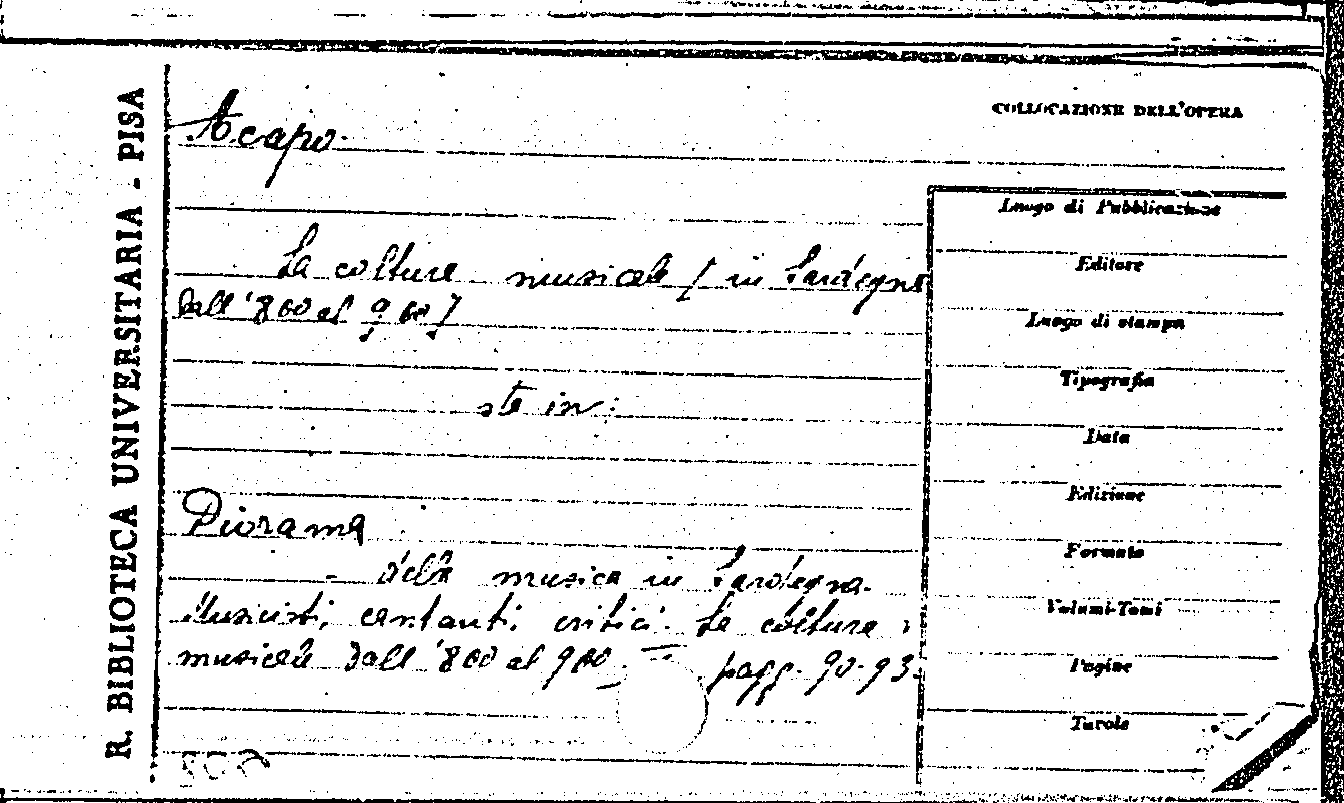 R. BIBLIOTECA UNIVERSITARIA - PISA
COLLOCAZIONE DELL'OPERA
Acapo.
La coltura musicale [in Sardegna
dall'800 al 900]
sta in:
Diorama
della musica in Sardegna.
Musicisti, cantanti, critici. La coltura
musicale dall'800 al 900. pagg. 90-93.
Luogo di Pubblicazione
Editore
Luogo di stampa
Tipografia
Data
Edizione
Formato
Volumi-Tomi
Pagine
Tavole